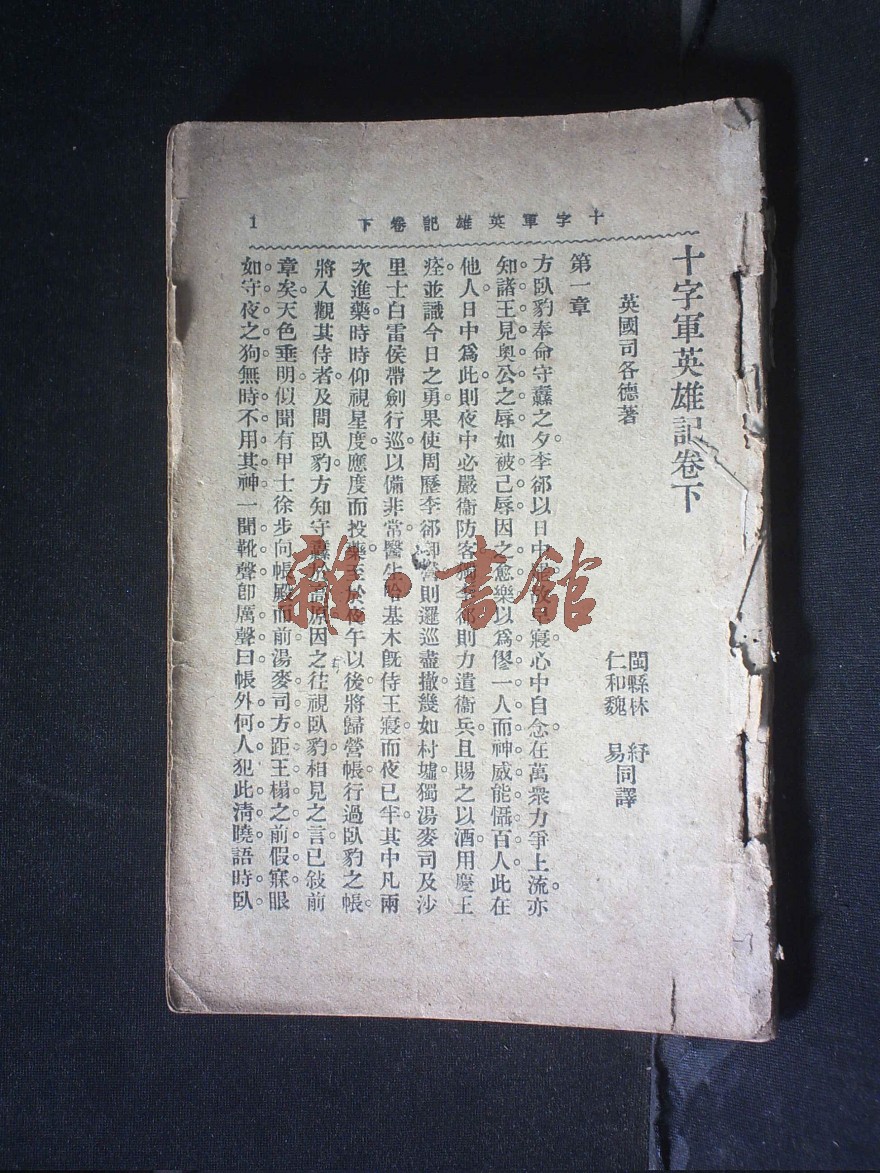 十字軍英雄記卷下
1
十字軍英雄記卷下
英國司各德著
閩縣林 紓
仁和魏 易同譯
第一章
方臥豹奉命守纛之夕。李郤以日中寢心中自念在萬衆力爭上流。亦
知諸王見奧公之辱。如被己辱。因之愈樂。以爲僇一人而神威能懾百人。此在
他人日中爲此。則夜中必嚴衞防客。李郤則力遣衞兵。且賜之以酒。用慶王
痊。並識今日之勇果。使周歷李郤則邏巡盡撤。幾如村墟。獨湯麥司及沙
里士白雷侯帶劍行巡。以備非常。醫生哈基木旣侍王寢。而夜已半。其中凡兩
次進藥。時時仰視星度。應度而投藥。至於夜午以後。將歸營帳。行過臥豹之帳。
將入觀其侍者。及問臥豹。方知守纛原因之往視臥豹。相見之言。已敍前
章矣。天色垂明。似聞有甲士徐步向帳殿而前。湯麥司方距王榻之前假寐。眼
如守夜之狗。無時不用其神。一聞靴聲。卽厲聲曰。帳外何人犯此淸曉。語時臥
雜·書館